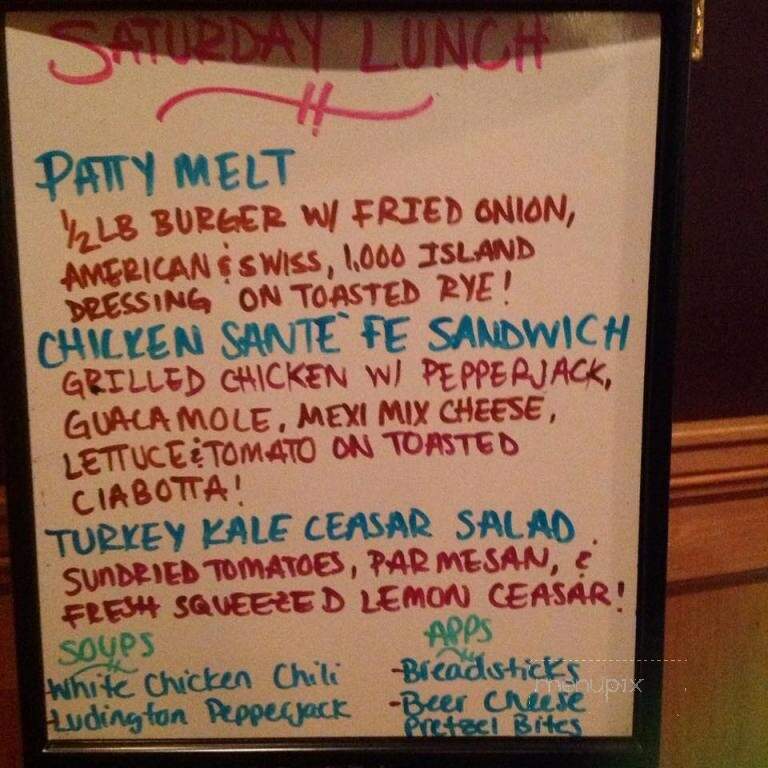 SATURDAY LUNCH
PATTY MELT
1/2 LB BURGER W/ FRIED ONION,
AMERICAN & SWISS, 1,000 ISLAND
DRESSING ON TOASTED RYE!
CHICKEN SANTE` FE SANDWICH
GRILLED CHICKEN W/ PEPPERJACK,
GUACAMOLE, MEXI MIX CHEESE,
LETTUCE & TOMATO ON TOASTED
CIABOTTA!
TURKEY KALE CEASAR SALAD
SUNDRIED TOMATOES, PARMESAN, &
FRESH SQUEEZED LEMON CEASAR!
SOUPS
White Chicken Chili
Ludington Pepperjack
APPS
-Breadsticks
-Beer Cheese
Pretzel Bites
menupix